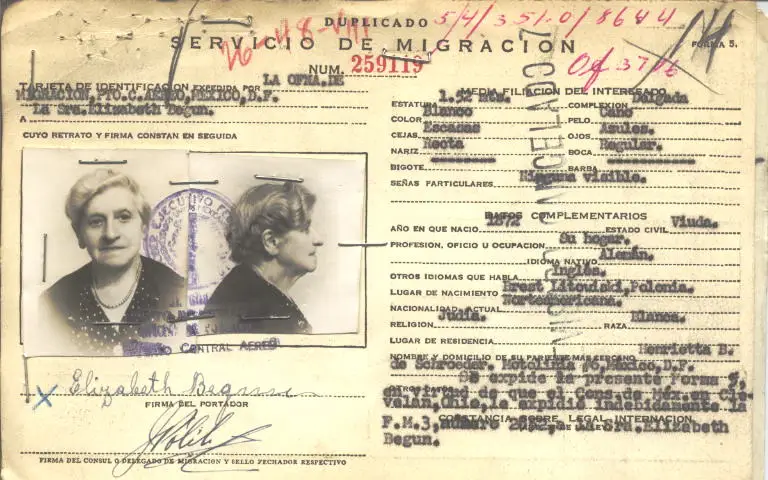 DUPLICADO
5/4/351.0/8644
SERVICIO DE MIGRACION
FORMA 5.
NUM. 259119
Of 3716
TARJETA DE IDENTIFICACION EXPEDIDA POR LA OFNA.DE
MIGRACION,PTO.C.AEREO,MEXICO,D.F.
A La Sra.Elizabeth Begun.
CUYO RETRATO Y FIRMA CONSTAN EN SEGUIDA
CENTRAL AEREO
Elizabeth Begun
FIRMA DEL PORTADOR
FIRMA DEL CONSUL O DELEGADO DE MIGRACION Y SELLO FECHADOR RESPECTIVO
MEDIA FILIACION DEL INTERESADO
ESTATURA 1.52 Mts. COMPLEXION Delgada
COLOR Blanco PELO Cano
CEJAS Escasas OJOS Azules.
NARIZ Recta BOCA Regular.
BIGOTE BARBA
SEÑAS PARTICULARES Ninguna visible.
DATOS COMPLEMENTARIOS
AÑO EN QUE NACIO 1872 ESTADO CIVIL Viuda.
PROFESION, OFICIO U OCUPACION Su hogar.
IDIOMA NATIVO Alemán.
OTROS IDIOMAS QUE HABLA Inglés.
LUGAR DE NACIMIENTO Brest Litowiski,Polonia.
NACIONALIDAD ACTUAL Norteamericana.
RELIGION Judía. RAZA Blanca.
LUGAR DE RESIDENCIA
NOMBRE Y DOMICILIO DE SU PARIENTE MAS CERCANO Henrietta B.
de Schroeder. Motolinia #6,Mexico,D.F.
OTROS DATOS Se expide la presente Forma 5,
en virtud de que el Cons.de Méx.en Cle
velan,Ohio,le expidió la
CONSTANCIA SOBRE LEGAL INTERNACION
F.M.3,número Sra.Elizabeth
Begun.
CANCELADO